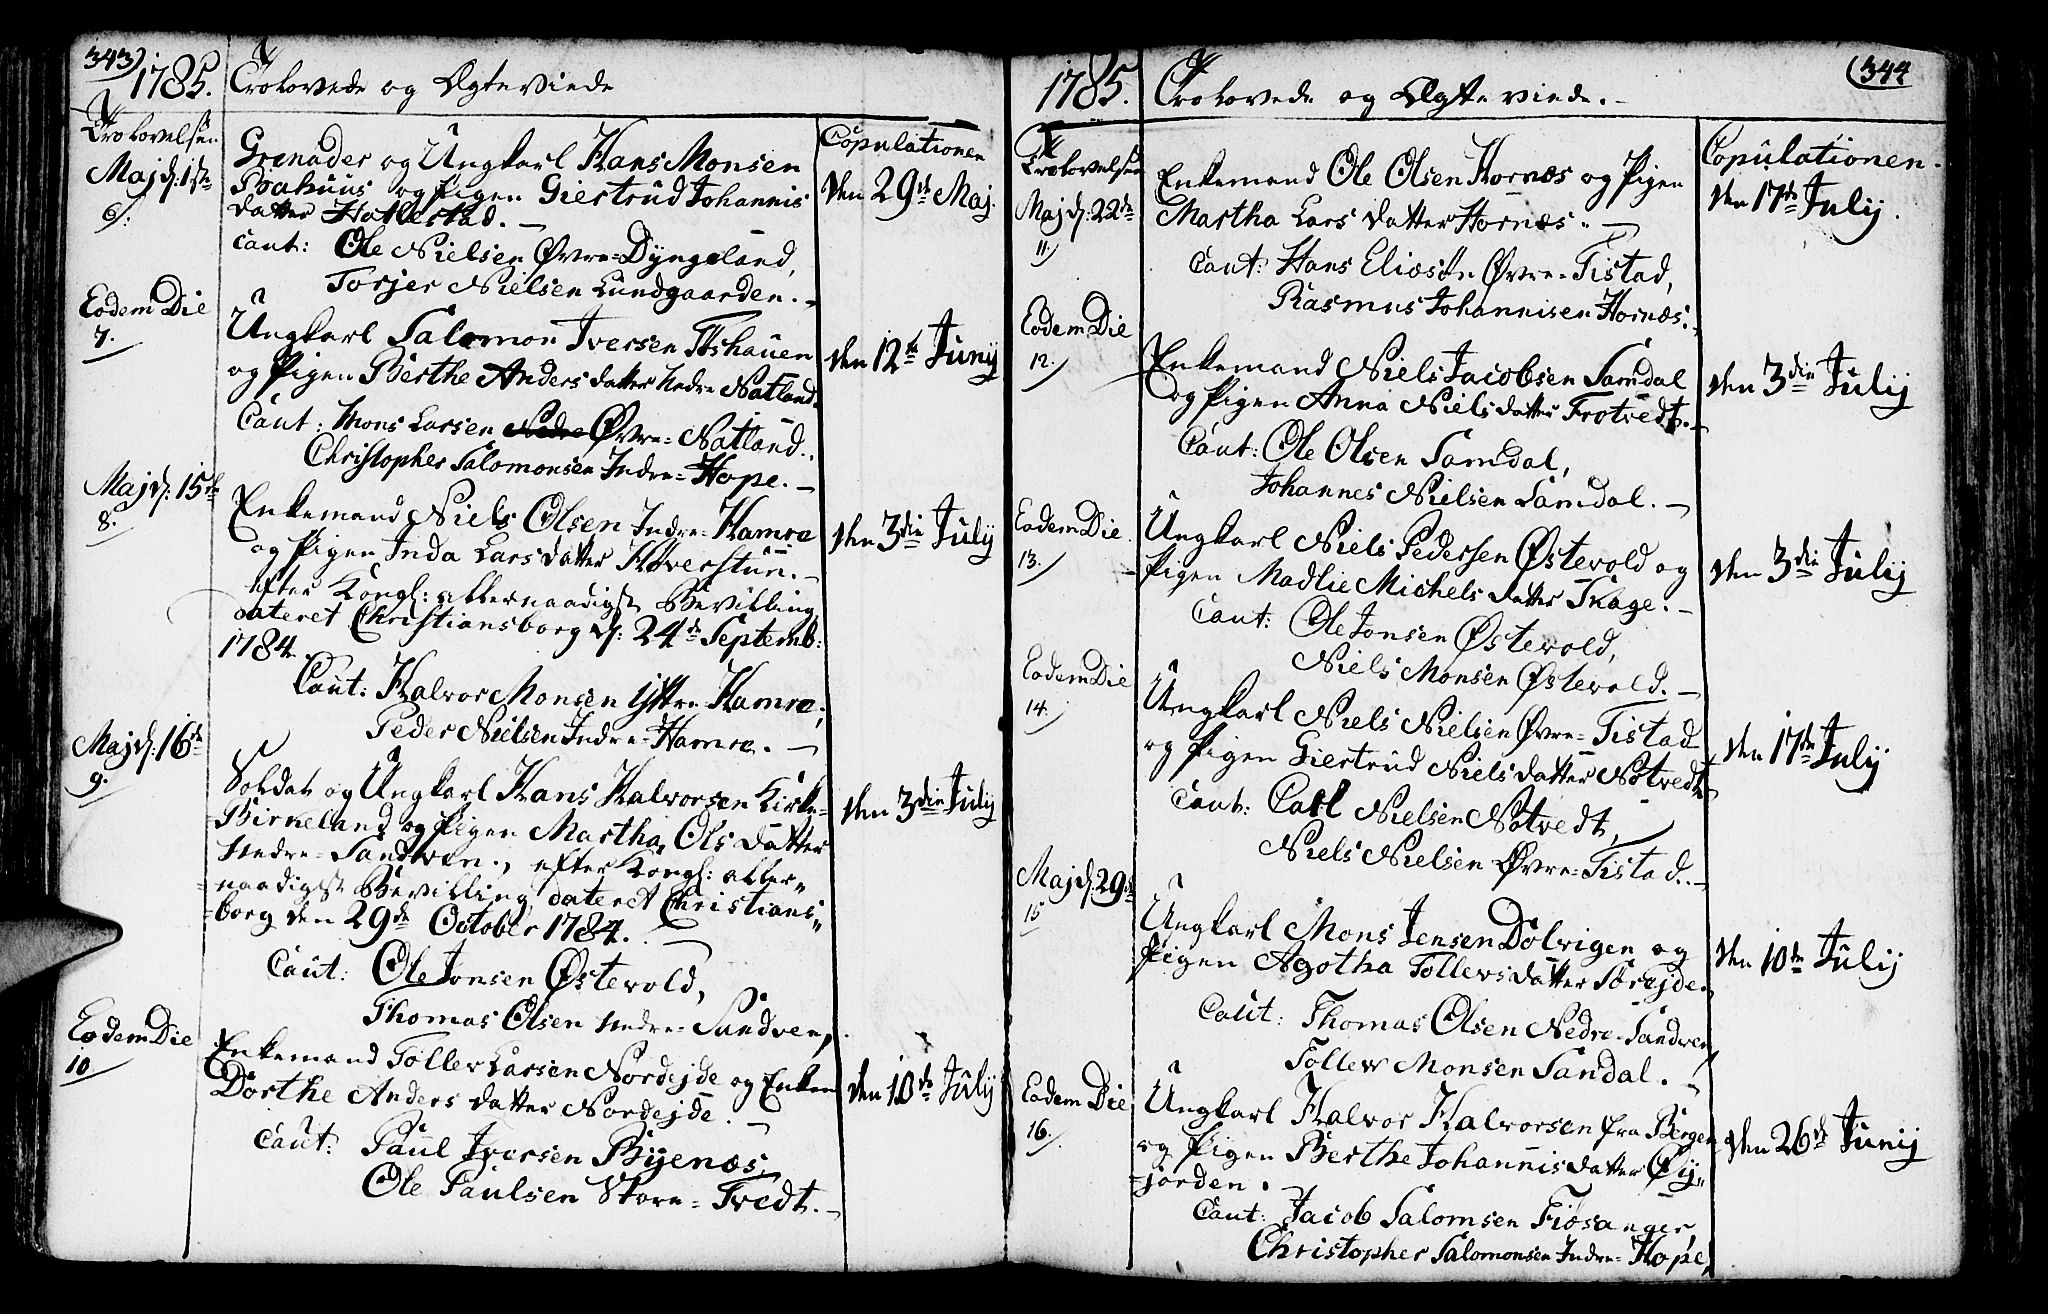 343)
1785. Trolovede og Ægteviede
Trolovelsen
Copulationen
Maj d: 1ste
6.
Grenader og Ungkarl Hans Monsen
Bahuus og Pigen Giertrud Johannis
datter Hatlestad. –
den 29de Maj.
Caut: Ole Nielsen Øvre=Dyngeland,
Torjer Nielsen Lundgaarden. –
Eodem Die
7.
Ungkarl Salomon Iversen
og Pigen Berthe Anders datter Nedre Natland.
den 12te Junij
Caut: Mons Larsen Nedre Øvre=Natland.
Christopher Salomonsen Indre=Hope. –
Maj d: 15de
8.
Enkemand Niels Olsen Indre=Hamre
og Pigen Inda Lars datter Høverstuen. –
den 3die Julij
efter Kongl: allernaadigst Bevilling
dateret Christiansborg d: 24de Septemb:
1784.
Caut: Halvor Monsen Yttre=Hamre,
Peder Nielsen Indre=Hamre. –
Maj d: 16de
9.
Soldat og Ungkarl Hans Halvorsen Kirke=
Birkeland og Pigen Martha Ols datter
den 3die Julij
Nedre=Sandven., efter Kongl: aller=
naadigst Bevilling dateret Christians=
=borg den 29de October 1784.
Caut: Ole Jonsen Østevold,
Thomas Olsen Nedre=Sandven,
Eodem Die
10
Enkemand Toller Larsen Nordejde og Enken
Dorthe Anders datter Nordejde. –
den 10de Julij
Caut: Paul Iversen Byenæs,
Ole Paulsen Store=Tvedt. –
(344
1785. Trolovede og Ægteviede. –
Trolovelsen
Copulationen.
Maj d: 22de
11.
Enkemand Ole Olsen Hornæs og Pigen
Martha Lars datter Hornæs. –
den 17de Julij.
Caut: Hans Eliæsøn Øvre=Tistad,
Rasmus Johannisen Hornæs. –
Eodem Die
12.
Enkemand Niels Jacobsen Samdal
og Pigen Anna Niels datter Frotvedt. –
den 3die Julij
Caut: Ole Olsen Samdal,
Johannes Nielsen Samdal. –
Eodem Die
13.
Ungkarl Niels Pedersen Østevold og
Pigen Madlie Michels datter Skage. –
den 3die Julij
Caut: Ole Jonsen Østevold,
Niels Monsen Østevold. –
Eodem Die
14.
Ungkarl Niels Nielsen Øvre=Tistad
og Pigen Giertrud Niels datter Nøtvedt
den 17de Julij
Caut: Carl Nielsen Nøtvedt,
Niels Nielsen Øvre=Tistad. –
Maj d: 29de
15
Ungkarl Mons Jensen Dolvigen og
Pigen Agotha Tollevs datter Sørejde.
den 10de Julij
Caut: Thomas Olsen Nedre=Sandven,
Tollev Monsen Sandal. –
Eodem Die
16.
Ungkarl Halvor Halvorsen fra Bergen
og Pigen Berthe Johannis datter Øy=
=jorden.
den 26de Junij
Caut: Jacob Salomsen Fiøsanger,
Christopher Salomonsen Indre=Hope,